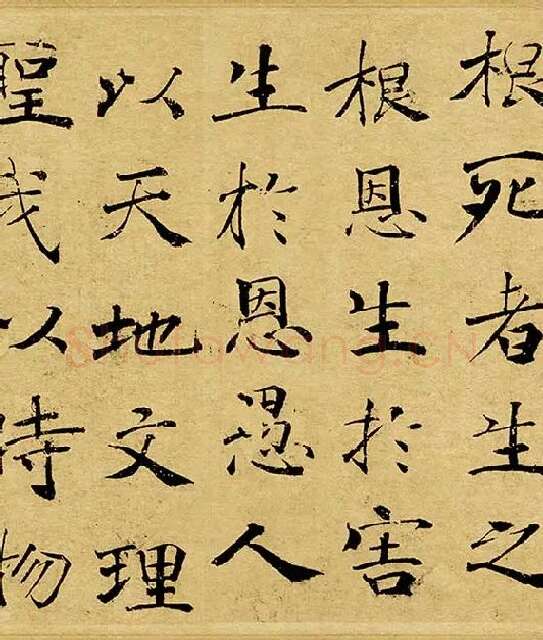 根死者生之
根恩生於害
生於恩愚人
以天地文理
聖我以時物